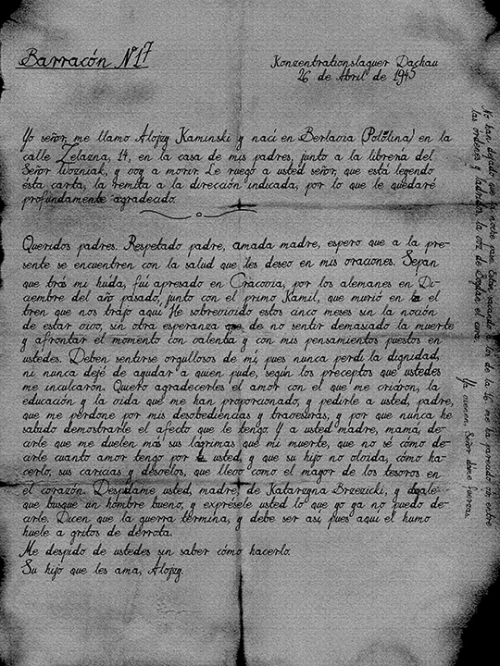 Barracón Nº 17
Konzentrationslaguer Dachau
26 de Abril de 1945
Yo señor, me llamo Alojzy Kaminski y nací en Berlaoia (Polölina) en la
calle Zelazna, 14, en la casa de mis padres, junto a la librería del
Señor Wozniak, y voy a morir. Le ruego a usted señor, que está leyendo
ésta carta, la remita a la dirección indicada, por lo que le quedaré
profundamente agradecido.
Queridos padres. Respetado padre, amada madre, espero que a la pre-
sente se encuentren con la salud que les deseo en mis oraciones. Sepan
que trás mi huida, fúi apresado en Cracovia, por los alemanes en Di-
ciembre del año pasado, junto con el primo Kamil, que murió en el
tren que nos trajo aquí. He sobrevivido estos cinco meses sin la noción
de estar vivo, sin otra esperanza que de no sentir demasiado la muerte
y afrontar el momento con valentía y con mis pensamientos puestos en
ustedes. Deben sentirse orgullosos de mí pues nunca perdí la dignidad,
ni nunca dejé de ayudar a quien pude, según los preceptos que ustedes
me inculcaron. Quiero agradecerles el amor con el que me criáron, la
educación y la vida que me han proporcionado, y pedirle a usted, padre,
que me perdone por mis desobediencias y travesuras, y por que nunca he
sabido demostrarle el afecto que le tengo. Y a usted madre, mamá, de-
cirle que me duelen más sus lágrimas que mi muerte, que no sé cómo de-
cirle cuanto amor tengo por usted, y que su hijo no olvida, cómo ha-
cerlo, sus caricias y desvelos, que llevo como el mayor de los tesoros en
el corazón. Despídame usted, madre, de Katarzyna Brzezicki, y dígale
que busque un hombre bueno, y exprésele usted lo que yo ya no puedo de-
cirle. Dicen que la guerra termina, y debe ser así, pues aquí el humo
huele a gritos de derrota.
Me despido de ustedes sin saber cómo hacerlo.
Su hijo que les ama, Alojzy
No han dejado
las órdenes y ladridos, la voz de
Ya vienen. Señor dame fuerzas.